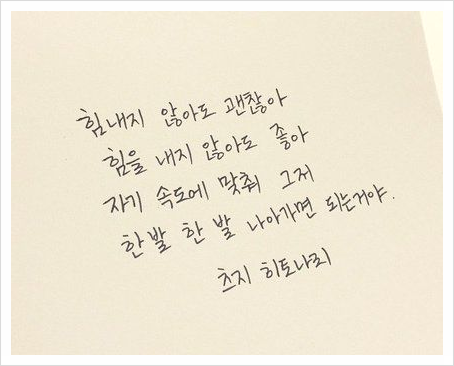 힘내지 않아도 괜찮아
힘을 내지 않아도 좋아
자기 속도에 맞춰 그저
한발 한 발 나아가면 되는거야.
츠지 히토나리